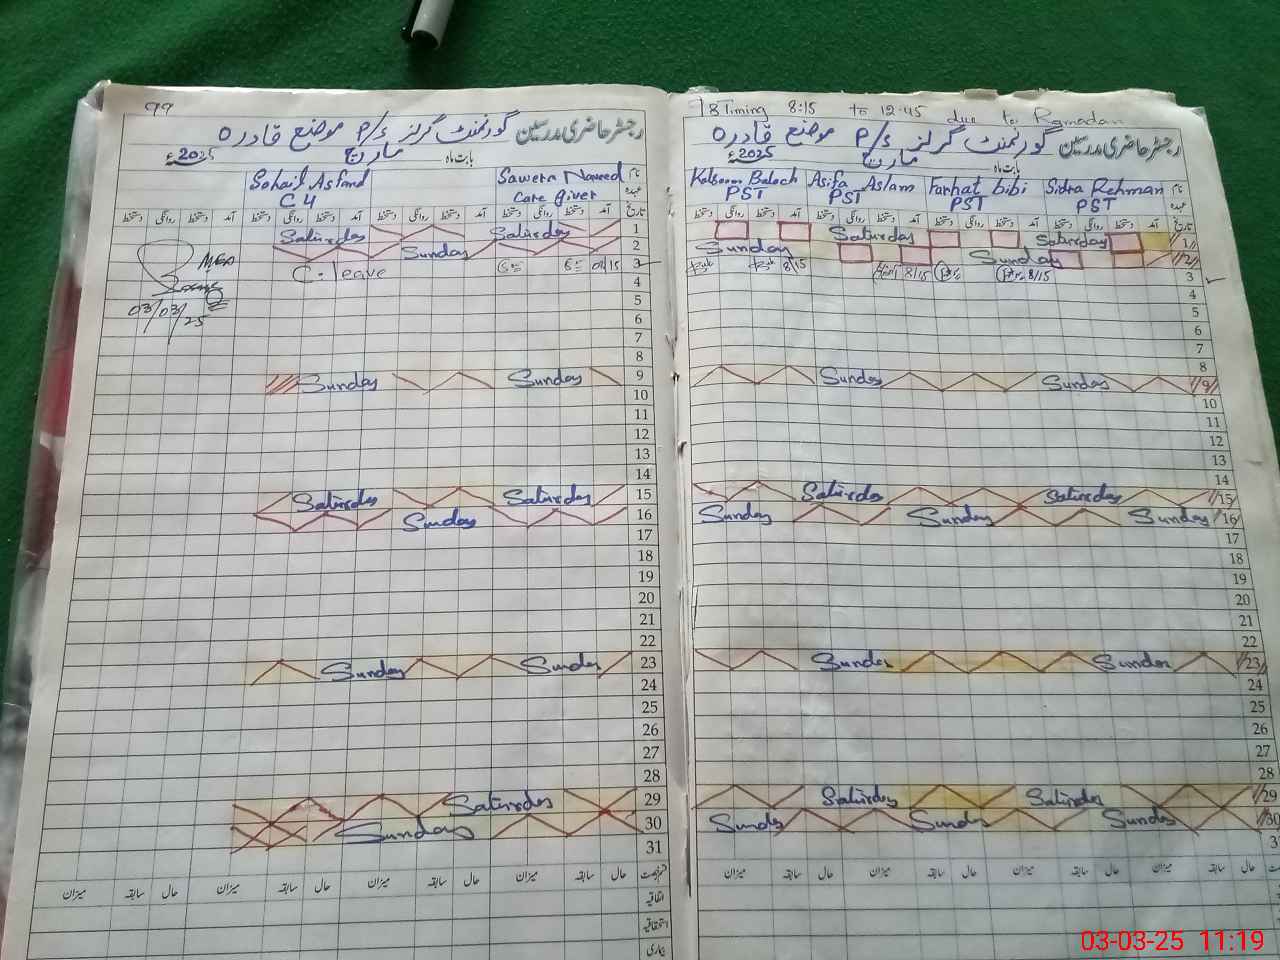 99
رجسٹر حاضری مدرسین گورنمنٹ گرلز P/S موضع قادرہ
بابت ماہ مارچ 2025ء
نام Sawera Naveed Sohail Asfand
عہدہ Care giver C4
تاریخ آمد دستخط روانگی دستخط آمد دستخط روانگی دستخط آمد دستخط روانگی دستخط آمد دستخط روانگی دستخط
1 Saturday Saturday
2 Sunday
3 08/15 C-leave
4
5
6
7
8
9 Sunday Sunday
10
11
12
13
14
15 Saturday Saturday
16 Sunday
17
18
19
20
21
22
23 Sunday Sunday
24
25
26
27
28
29 Saturday
30 Sunday
31
حال سابقہ میزان حال سابقہ میزان حال سابقہ میزان حال سابقہ میزان
اتفاقیہ
استحقاقیہ
بیماری
MEA
03/03/25
Timing 8:15 to 12:45 due to Ramadan
رجسٹر حاضری مدرسین گورنمنٹ گرلز P/S موضع قادرہ
بابت ماہ مارچ 2025ء
نام Kalsoom Baloch Asifa Aslam Farhat bibi Sidra Rehman
عہدہ PST PST PST PST
تاریخ آمد دستخط روانگی دستخط آمد دستخط روانگی دستخط آمد دستخط روانگی دستخط آمد دستخط روانگی دستخط
1 Saturday Saturday
2 Sunday Sunday
3 8/15 8/15 8/15
4
5
6
7
8
9 Sunday Sunday
10
11
12
13
14
15 Saturday Saturday
16 Sunday Sunday Sunday
17
18
19
20
21
22
23 Sunday Sunday
24
25
26
27
28
29 Saturday Saturday
30 Sunday Sunday Sunday
حال سابقہ میزان حال سابقہ میزان حال سابقہ میزان حال سابقہ میزان
03-03-25 11:19